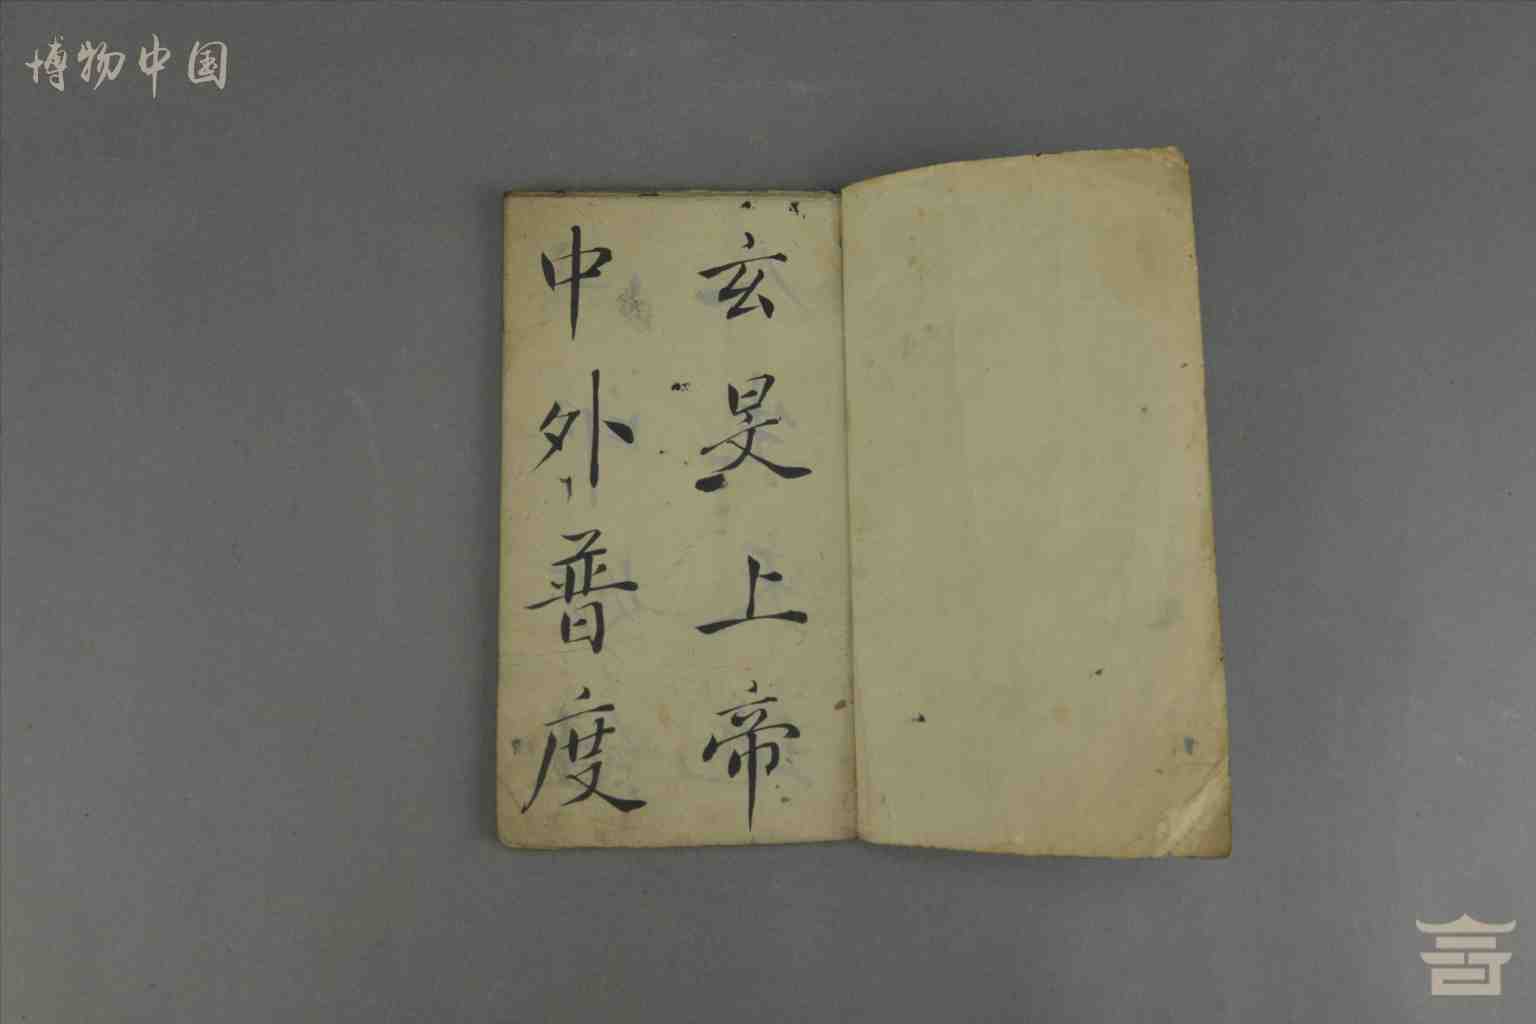 博物中国
玄旻上帝
中外普度